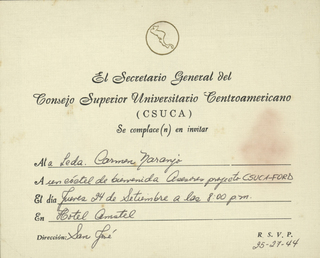 El Secretario General del
Consejo Superior Universitario Centroamericano
(CSUCA)
Se complace(n) en invitar
Al a Lcda. Carmen Naranjo
A un cóctel de bienvenida Asesores proyecto CSUCA-FORD
El día Jueves 24 de Setiembre a las 8:00 p.m.
En Hotel Amstel
Dirección: San José
R. S. V. P.
25-27-44